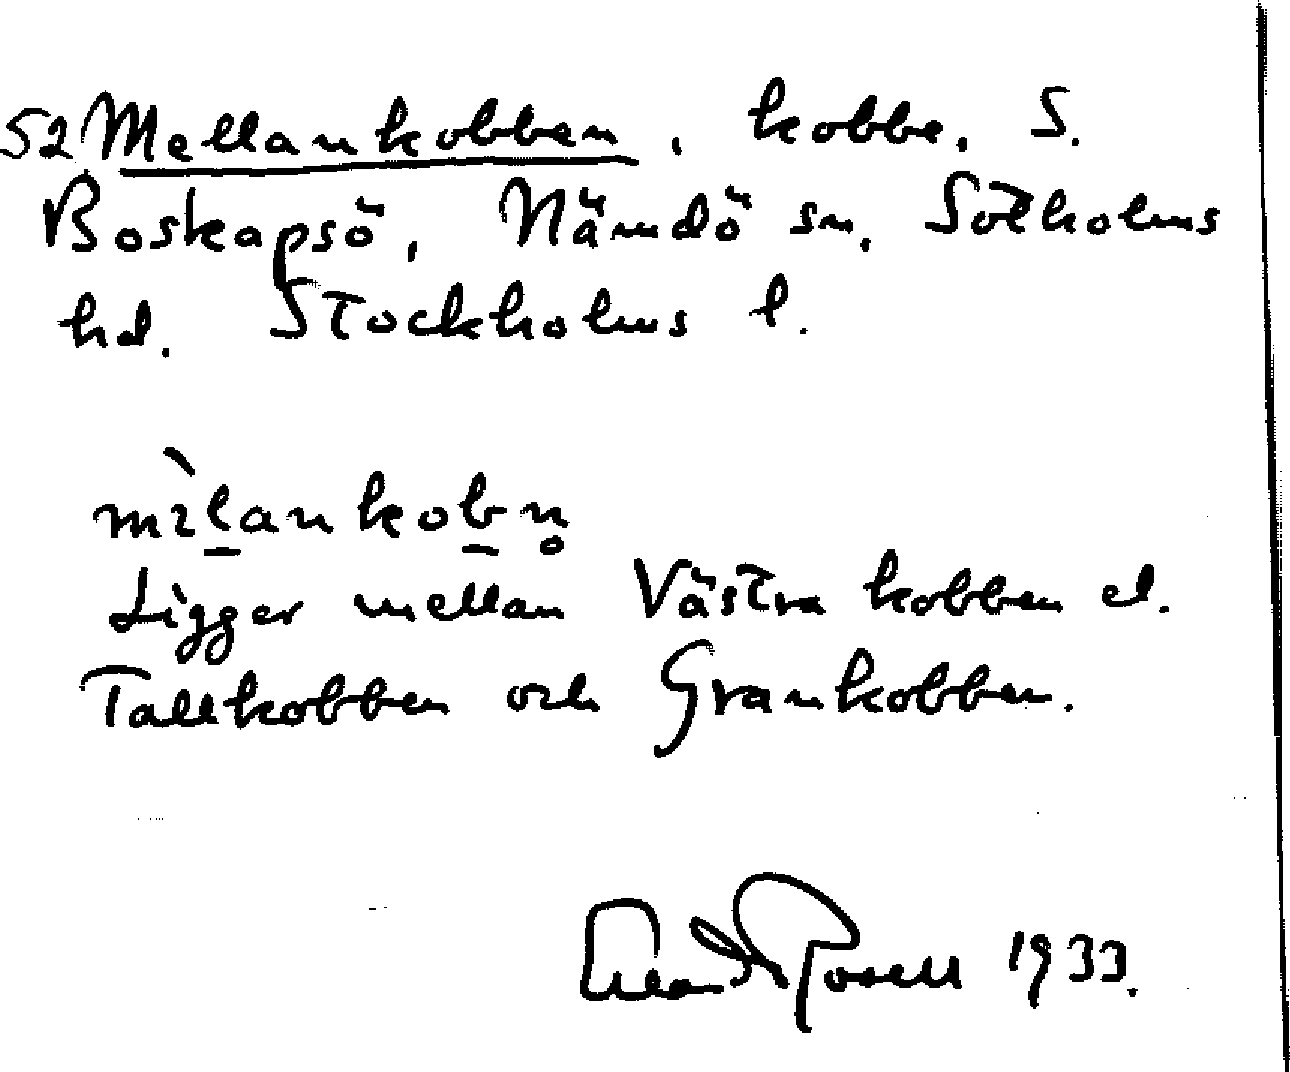 52 Mellankobben, kobbe, S.
Boskapsö, Nämdö sn, Sotholms
hd. Stockholms l.
mı̀l̠ankob̠n̥
Ligger mellan Västra kobben el.
Tallkobben och Grankobben.
Rosell 1933.